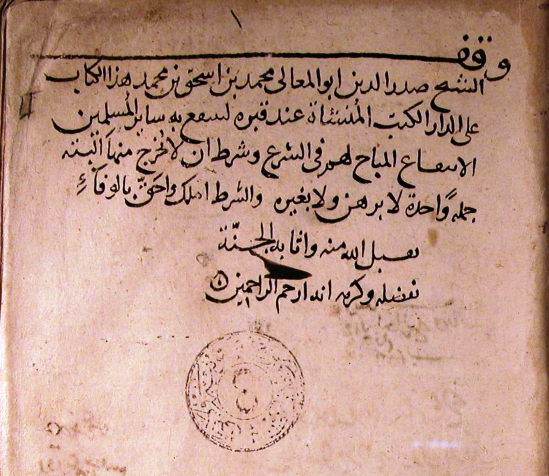 ١
وقف
الشيخ صدر الدين ابو المعالى محمد بن اسحق بن محمد هذا الكتاب
على الدار الكتب المنشاة عند قبره لينتفع به ساير المسلمين
الانتفاع المباح لهم فى الشرع وشرط ان لا يخرج منها البته
جملةً واحدة لا برهن ولا بغيره والشرط املك واحق بالوفاءِ
تقبل الله منه واثابه الجنّة
بفضله وكرمه انه ارحم الراحمين